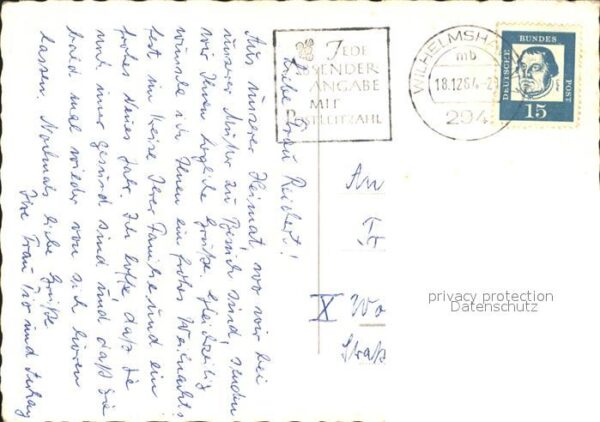 Liebe Frau Reichert!
Aus unserer Heimat, wo wir bei
unserer Mutter zu Besuch sind, senden
wir Ihnen herzliche Grüße. Gleichzeitig
wünsche ich Ihnen ein frohes Weihnachts-
fest im Kreise Ihrer Familie und ein
frohes Neues Jahr. Ich hoffe, daß Sie
alle immer gesund sind und daß Sie
bald mal wieder von sich hören
lassen. Nochmals liebe Grüße
Ihre Frau und
JEDE
SENDER
ANGABE
MIT
POSTLEITZAHL
WILHELMSHA
mb
18.12.64-2
294
DEUTSCHE BUNDES POST
15
An
X Wo
Straß
privacy protection
Datenschutz